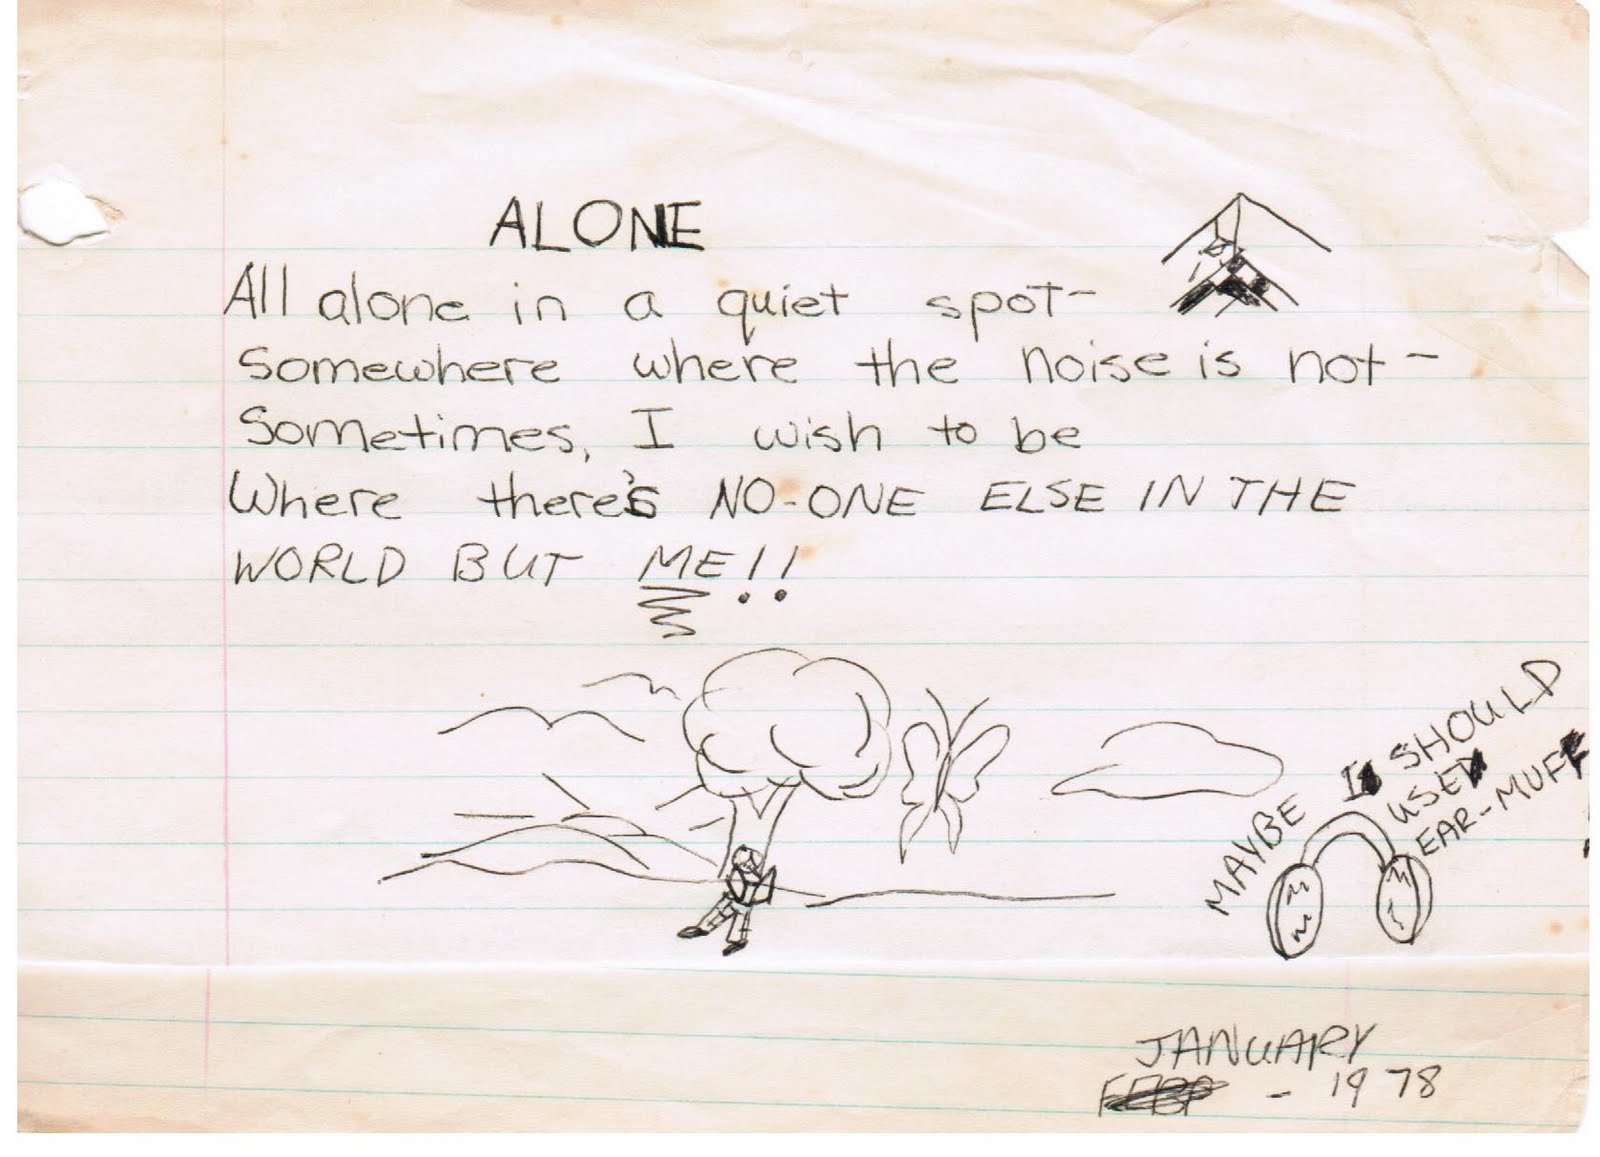 ALONE
All alone in a quiet spot-
Somewhere where the noise is not-
Sometimes, I wish to be
Where there's NO-ONE ELSE IN THE
WORLD BUT ME!!
MAYBE I SHOULD
USE
EAR-MUFF
JANUARY
- 1978